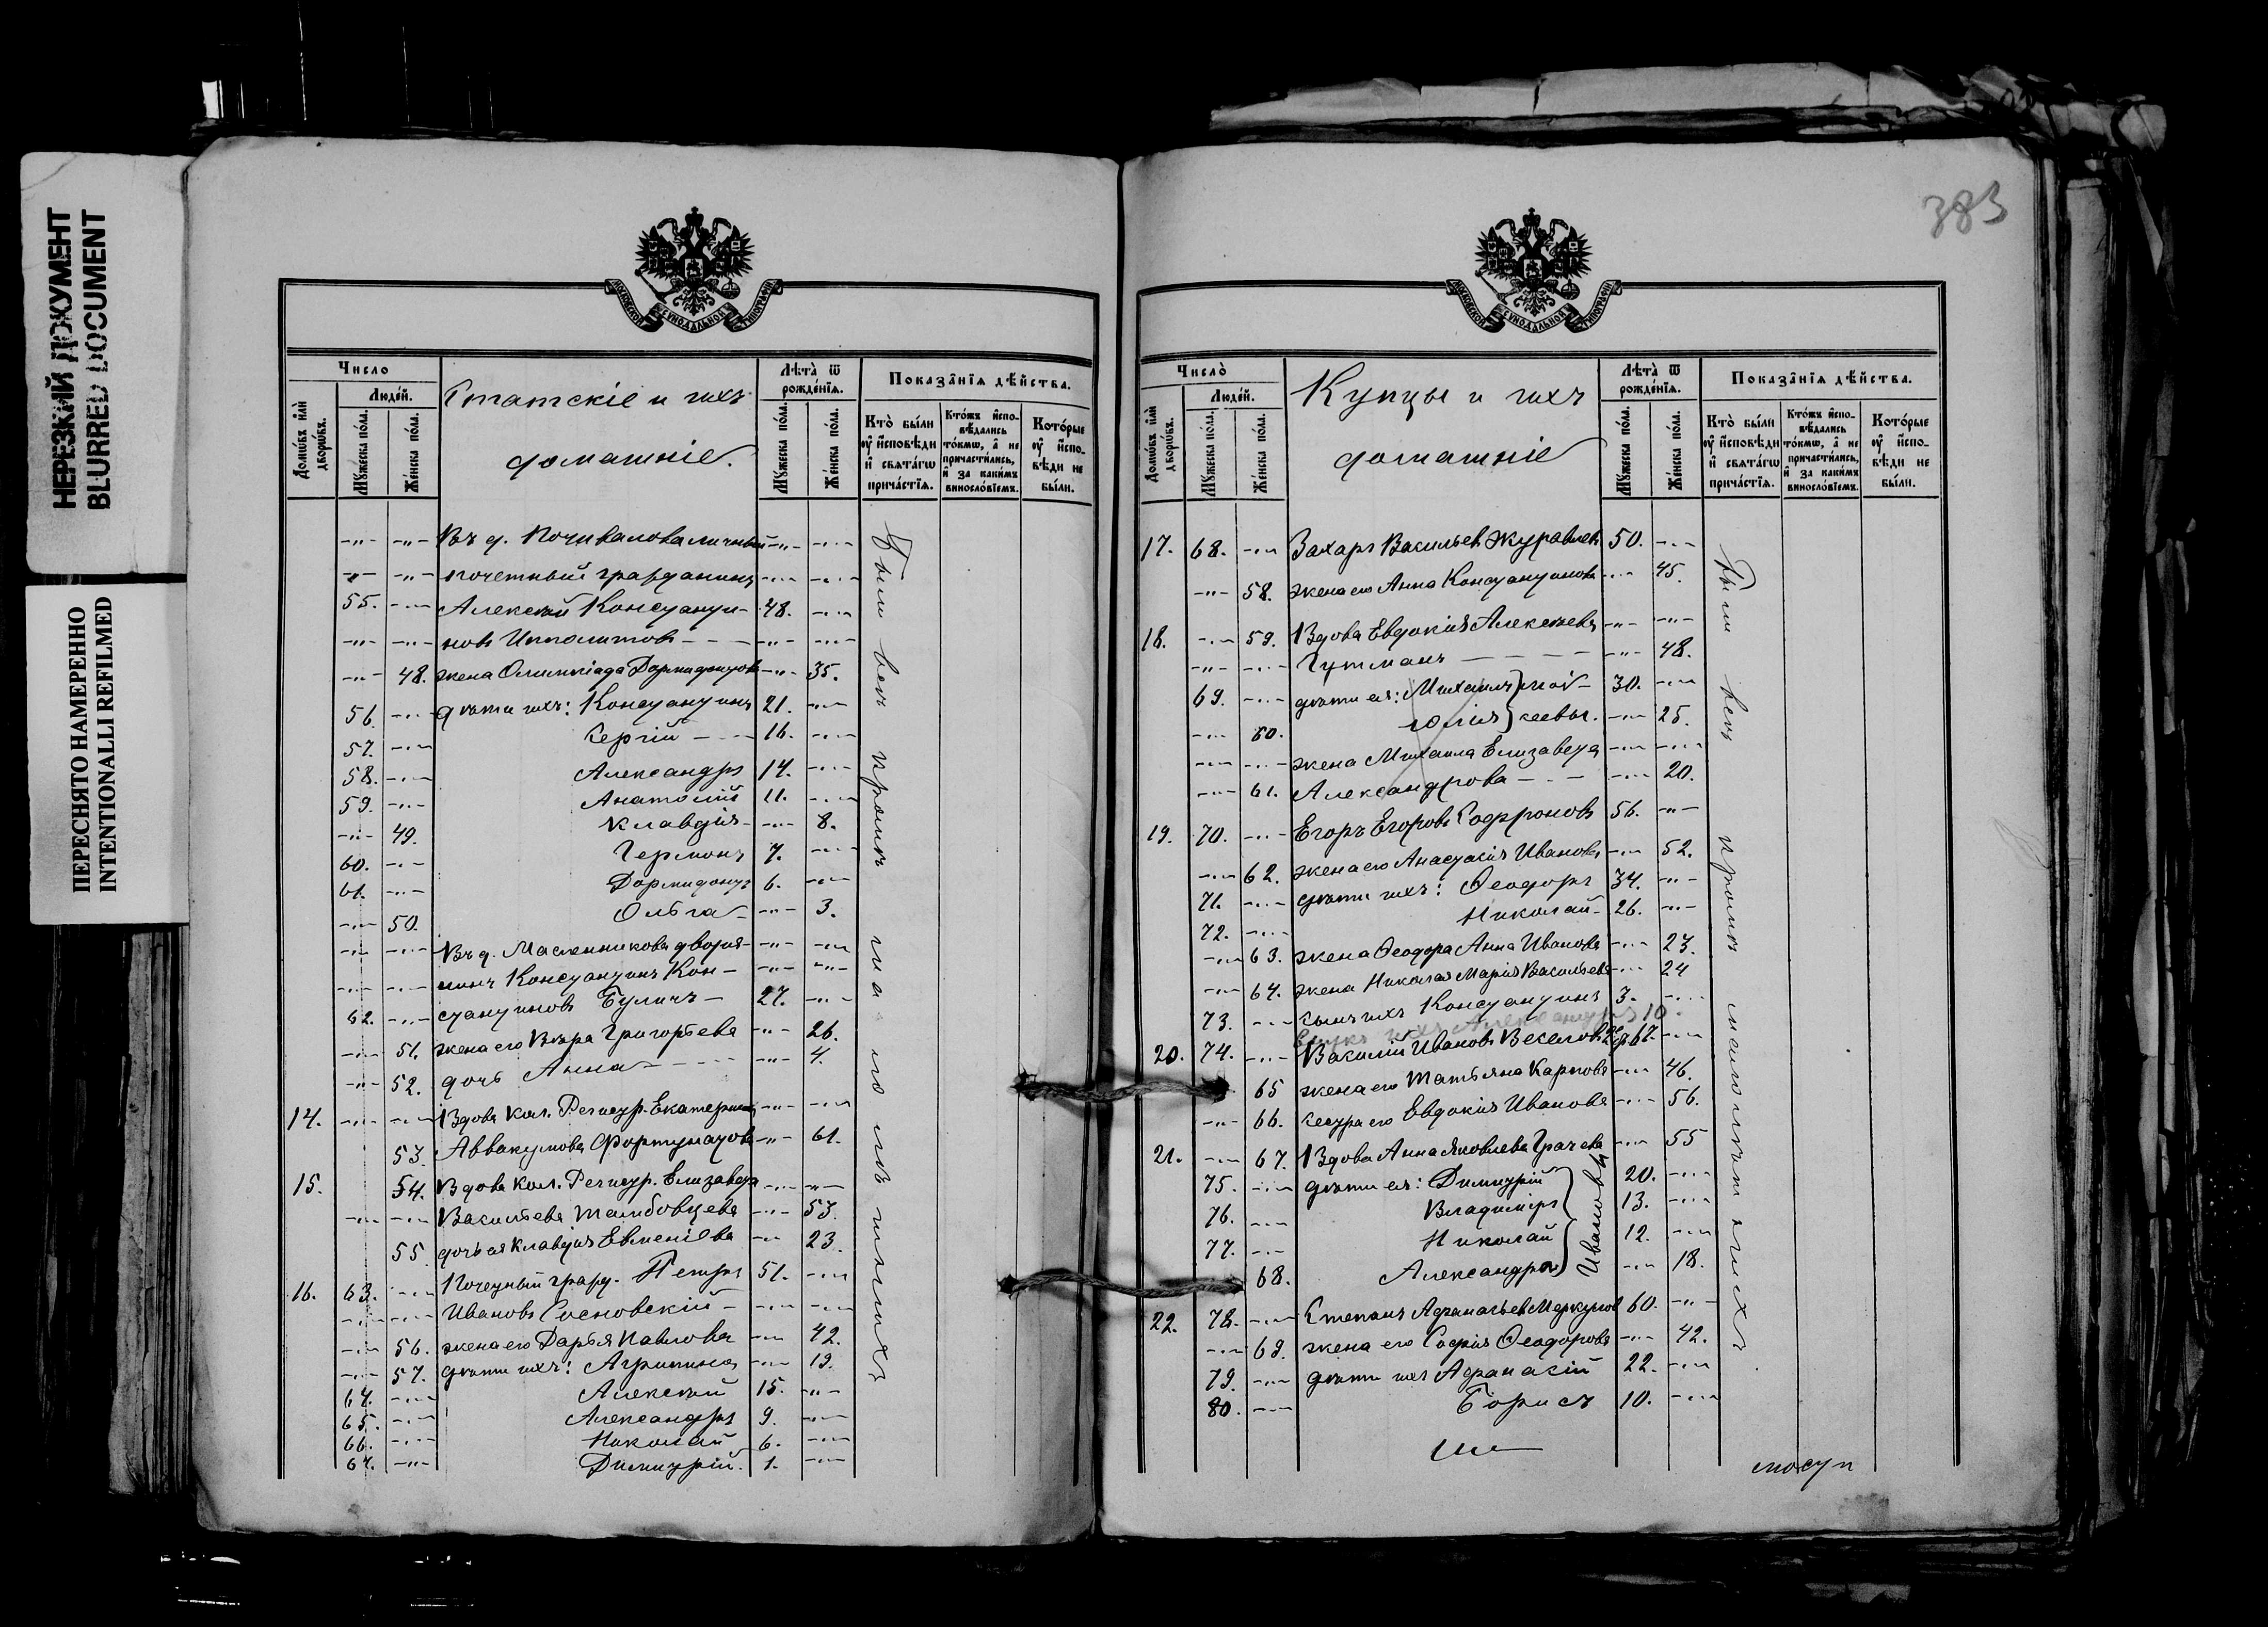 НЕРЕЗКИЙ ДОКУМЕНТ
BLURRED DOCUMENT
ПЕРЕСНЯТО НАМЕРЕННО
INTENTIONALLI REFILMED
МОСКОВСКОЙ СѴНОДАЛЬНОЙ ТИПОГРАФІИ
Число
Домѡвъ и҆лѝ дворѡвъ.
Людей.
Мꙋжеска пола.
Женска пола.
Статскіе и ихъ
домашніе.
Лѣта ѿ рожденїѧ.
Мꙋжеска пола.
Женска пола.
Показанїѧ дѣйства.
Кто были ᲂу исповѣди и свѧтагѡ причастїѧ.
Ктожъ исповѣдались токмѡ, а не причастились, и за какимъ винословїемъ.
Которые ᲂу исповѣди не были.
-„- -„- Въ д. Почивалова личный -„- -„-
-„- -„- почетный гражданинъ -„- -„-
55. -„- Алексѣй Константи- 48. -„-
-„- -„- новъ Ипполитовъ -„- -„-
-„- 48. жена Олимпіада Дормидонтова -„- 35.
56. -„- дѣти ихъ: Константинъ 21. -„-
57. -„- Сергій 16. -„-
58. -„- Александръ 14. -„-
59. -„- Анатолій 11. -„-
-„- 49. Клавдія -„- 8.
60. -„- Германъ 7. -„-
61. -„- Дормидонтъ 6. -„-
-„- 50. Ольга -„- 3.
-„- -„- Въ д. Масленникова дворя- -„- -„-
-„- -„- нинъ Константинъ Кон- -„- -„-
62. -„- стантиновъ Буличъ 27. -„-
-„- 51. жена его Вѣра Григорьева -„- 26.
-„- 52. дочь Анна -„- 4.
14. -„- -„- Вдова Кол. Регистр. Екатерина -„- -„-
53. Аввакумова Фортунатова -„- 61.
15. 54. Вдова Кол. Регистр. Елизавета -„- -„-
-„- -„- Васильева Тамбовцева -„- 53.
55 дочь ея Клавдія Евменіева -„- 23.
16. 63. -„- Почетный гражд. Петръ 51. -„-
-„- -„- Ивановъ Сосновскій -„- -„-
-„- 56. жена его Дарья Павлова -„- 42.
-„- 57. дѣти ихъ: Агрипина -„- 19.
64. -„- Алексѣй 15. -„-
65. -„- Александръ 9. -„-
66. -„- Николай 6. -„-
67. -„- Димитрій. 1. -„-
Были всѣ кромѣ малолѣтнихъ
383
МОСКОВСКОЙ СѴНОДАЛЬНОЙ ТИПОГРАФІИ
Число
Домѡвъ и҆лѝ дворѡвъ.
Людей.
Мꙋжеска пола.
Женска пола.
Купцы и ихъ
домашніе
Лѣта ѿ рожденїѧ.
Мꙋжеска пола.
Женска пола.
Показанїѧ дѣйства.
Кто были ᲂу исповѣди и свѧтагѡ причастїѧ.
Ктожъ исповѣдались токмѡ, а не причастились, и за какимъ винословїемъ.
Которые ᲂу исповѣди не были.
17. 68. -„- Захаръ Васильевъ Журавлевъ 50. -„-
-„- 58. жена его Анна Константинова -„- 45.
18. -„- 59. Вдова Евдокія Алексѣева -„- -„-
-„- -„- Гутманъ -„- 48.
69. -„- дѣти ея: Михаилъ } Мои- 30. -„-
-„- 60. Юлія } сеевы. -„- 25.
-„- -„- жена Михаила Елизавета -„- -„-
-„- 61. Александрова -„- 20.
19. 70. -„- Егоръ Егоровъ Софроновъ 56. -„-
-„- 62. жена его Анастасія Иванова -„- 52.
71. -„- дѣти ихъ: Ѳеодоръ 34. -„-
72. -„- Николай 26. -„-
-„- 63. жена Ѳеодора Анна Иванова -„- 23.
-„- 64. жена Николая Марія Васильева -„- 24
73. -„- сынъ ихъ Константинъ 3. -„-
внукъ ихъ Александръ 10
20. 74. -„- Василій Ивановъ Веселовъ 67. -„-
65 жена его Татьяна Карпова -„- 46.
-„- 66. сестра его Евдокія Иванова -„- 56.
21. -„- 67. Вдова Анна Яковлева Грачева -„- 55
75. -„- дѣти ея: Димитрій 20. -„-
76. -„- Владиміръ 13. -„-
77. -„- Николай 12. -„-
68. Александра -„- 18.
Ивановы
22. 78. -„- Степанъ Афанасьевъ Меркуловъ 60. -„-
-„- 69. жена его Софія Ѳеодорова -„- 42.
79. -„- дѣти ихъ Афанасій 22. -„-
80. -„- Борисъ 10. -„-
Были всѣ кромѣ малолѣтнихъ